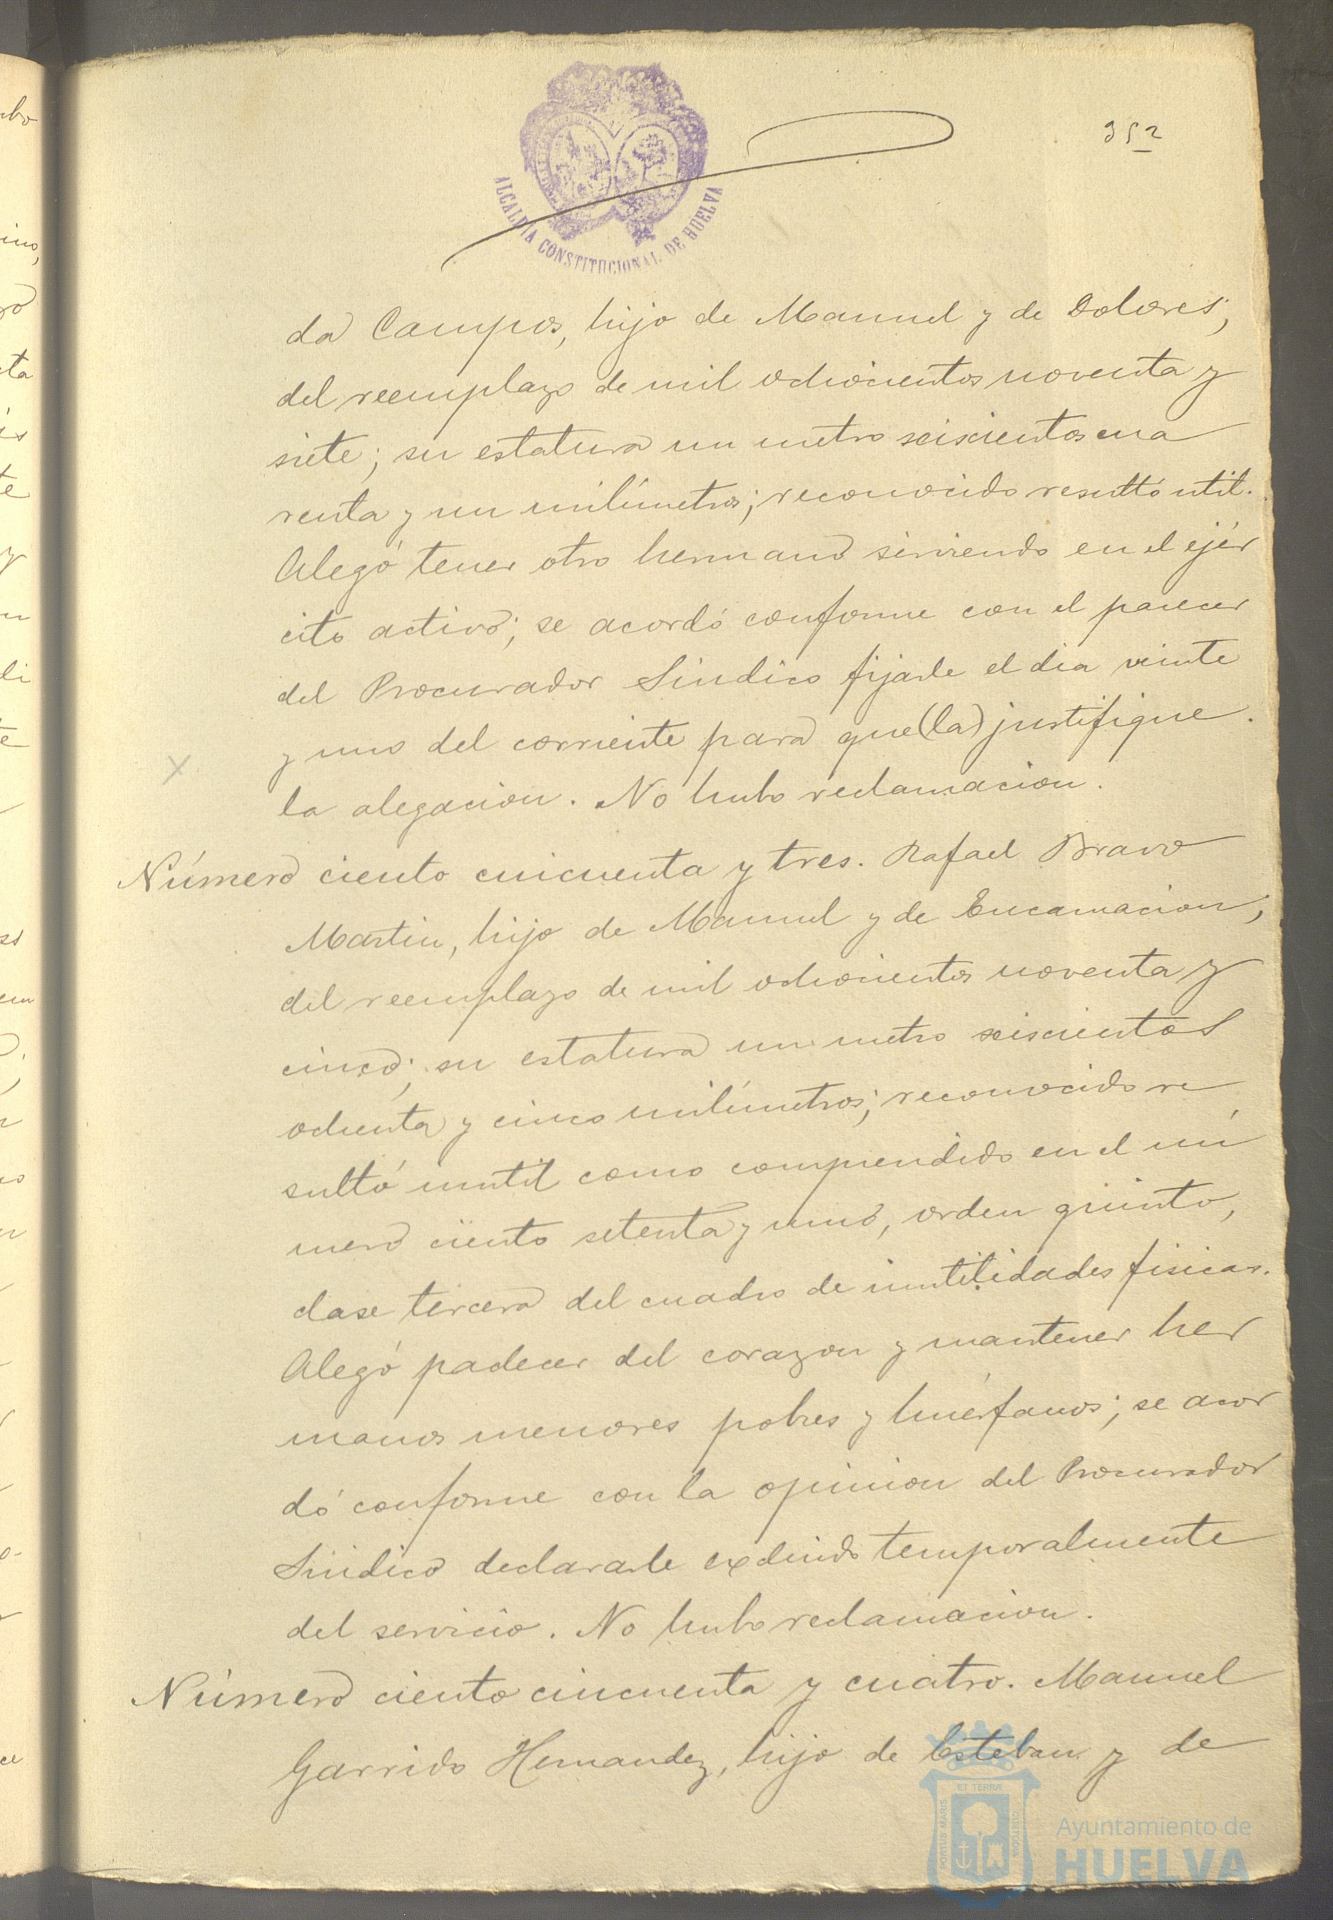 352
ALCALDIA CONSTITUCIONAL DE HUELVA
da Campos, hijo de Manuel y de Dolores,
del reemplazo de mil ochocientos noventa y
siete; su estatura un metro seiscientos cua
renta y un milímetros; reconocido resultó util.
Alegó tener otro hermano sirviendo en el ejér
cito activo; se acordó conforme con el parecer
del Procurador Sindico fijarle el dia veinte
y uno del corriente para que (la) justifique
la alegacion. No hubo reclamacion.
Número ciento cincuenta y tres. Rafael Bravo
Martin, hijo de Manuel y de Encarnacion,
del reemplazo de mil ochocientos noventa y
cinco; su estatura un metro seiscientos
ochenta y cinco milímetros; reconocido re
sultó inutil como comprendido en el nú
mero ciento setenta y uno, orden quinto,
clase tercera del cuadro de inutilidades fisicas.
Alegó padecer del corazon y mantener her
manos menores pobres y huérfanos; se acor
dó conforme con la opinion del Procurador
Sindico declararle excluido temporalmente
del servicio. No hubo reclamacion.
Número ciento cincuenta y cuatro. Manuel
Garrido Hernandez, hijo de Esteban y de
PORTUS MARIS ET TERRAE CUSTODIA
Ayuntamiento de
HUELVA